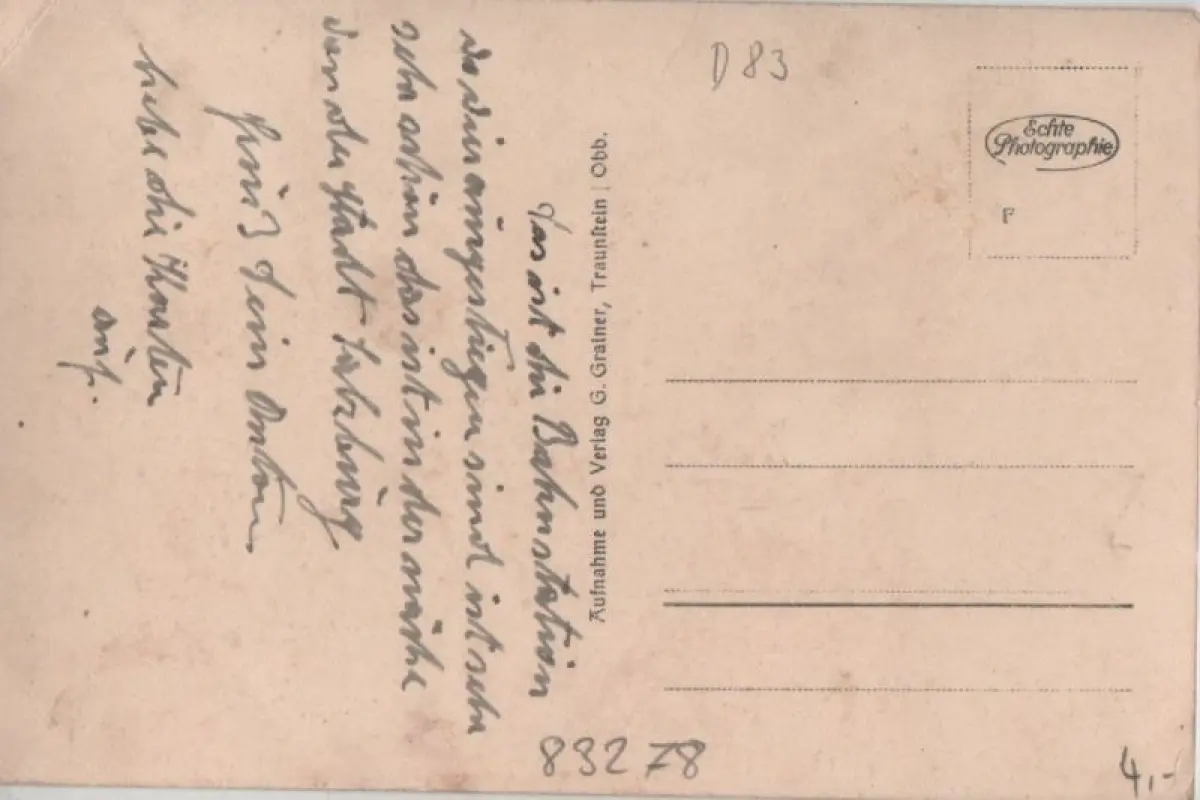 Das ist die Bahnstation
wo wir ausgestiegen sind ist sehr
sehr schön das ist in der nähe
von der Stadt Salzburg
Gruß Dein Anton
hebe die Karten
auf.
Aufnahme und Verlag G. Grainer, Traunstein | Obb.
D 83
Echte
Photographie
P
83278
4,-